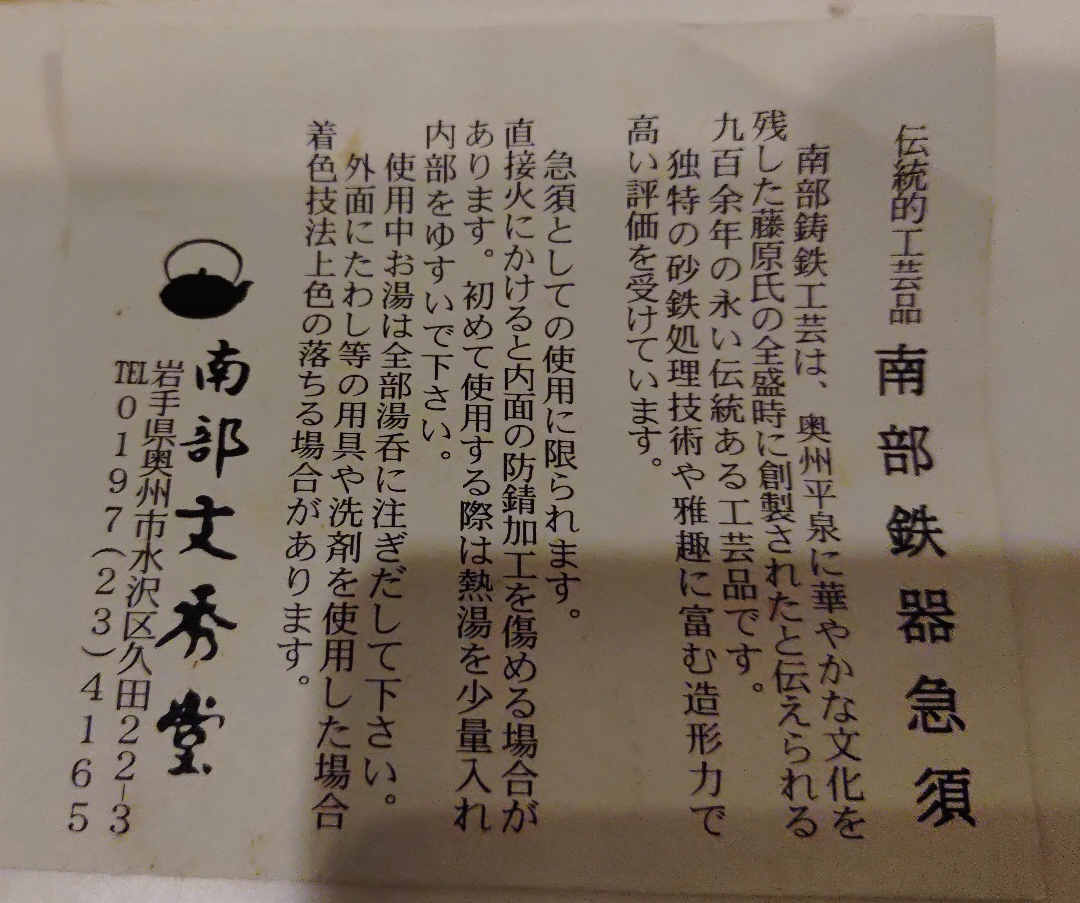 伝統的工芸品 南部鉄器急須
南部鋳鉄工芸は、奥州平泉に華やかな文化を
残した藤原氏の全盛時に創製されたと伝えられる
九百余年の永い伝統ある工芸品です。
独特の砂鉄処理技術や雅趣に富む造形力で
高い評価を受けています。
急須としての使用に限られます。
直接火にかけると内面の防錆加工を傷める場合が
あります。初めて使用する際は熱湯を少量入れ
内部をゆすいで下さい。
使用中お湯は全部湯呑に注ぎだして下さい。
外面にたわし等の用具や洗剤を使用した場合
着色技法上色の落ちる場合があります。
南部文秀堂
岩手県奥州市水沢区久田22-3
TEL0197(23)4165